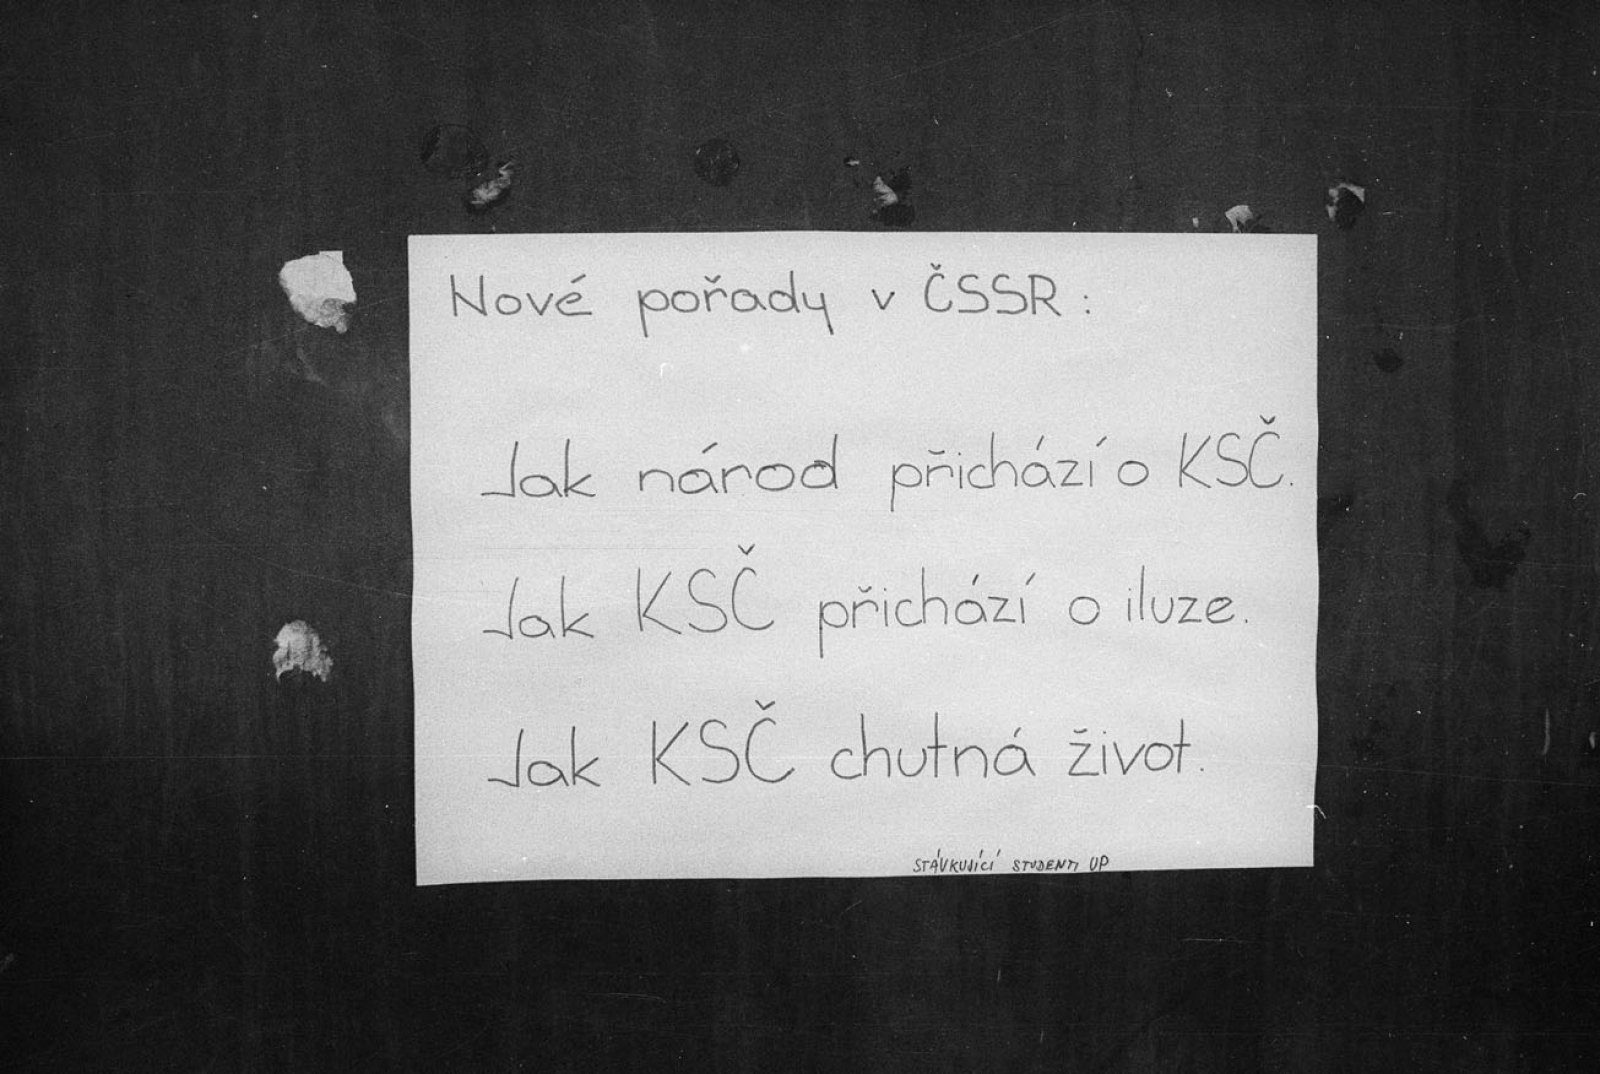 Nové pořady v ČSSR:
Jak národ přichází o KSČ.
Jak KSČ přichází o iluze.
Jak KSČ chutná život.
STÁVKUJÍCÍ STUDENTI UP